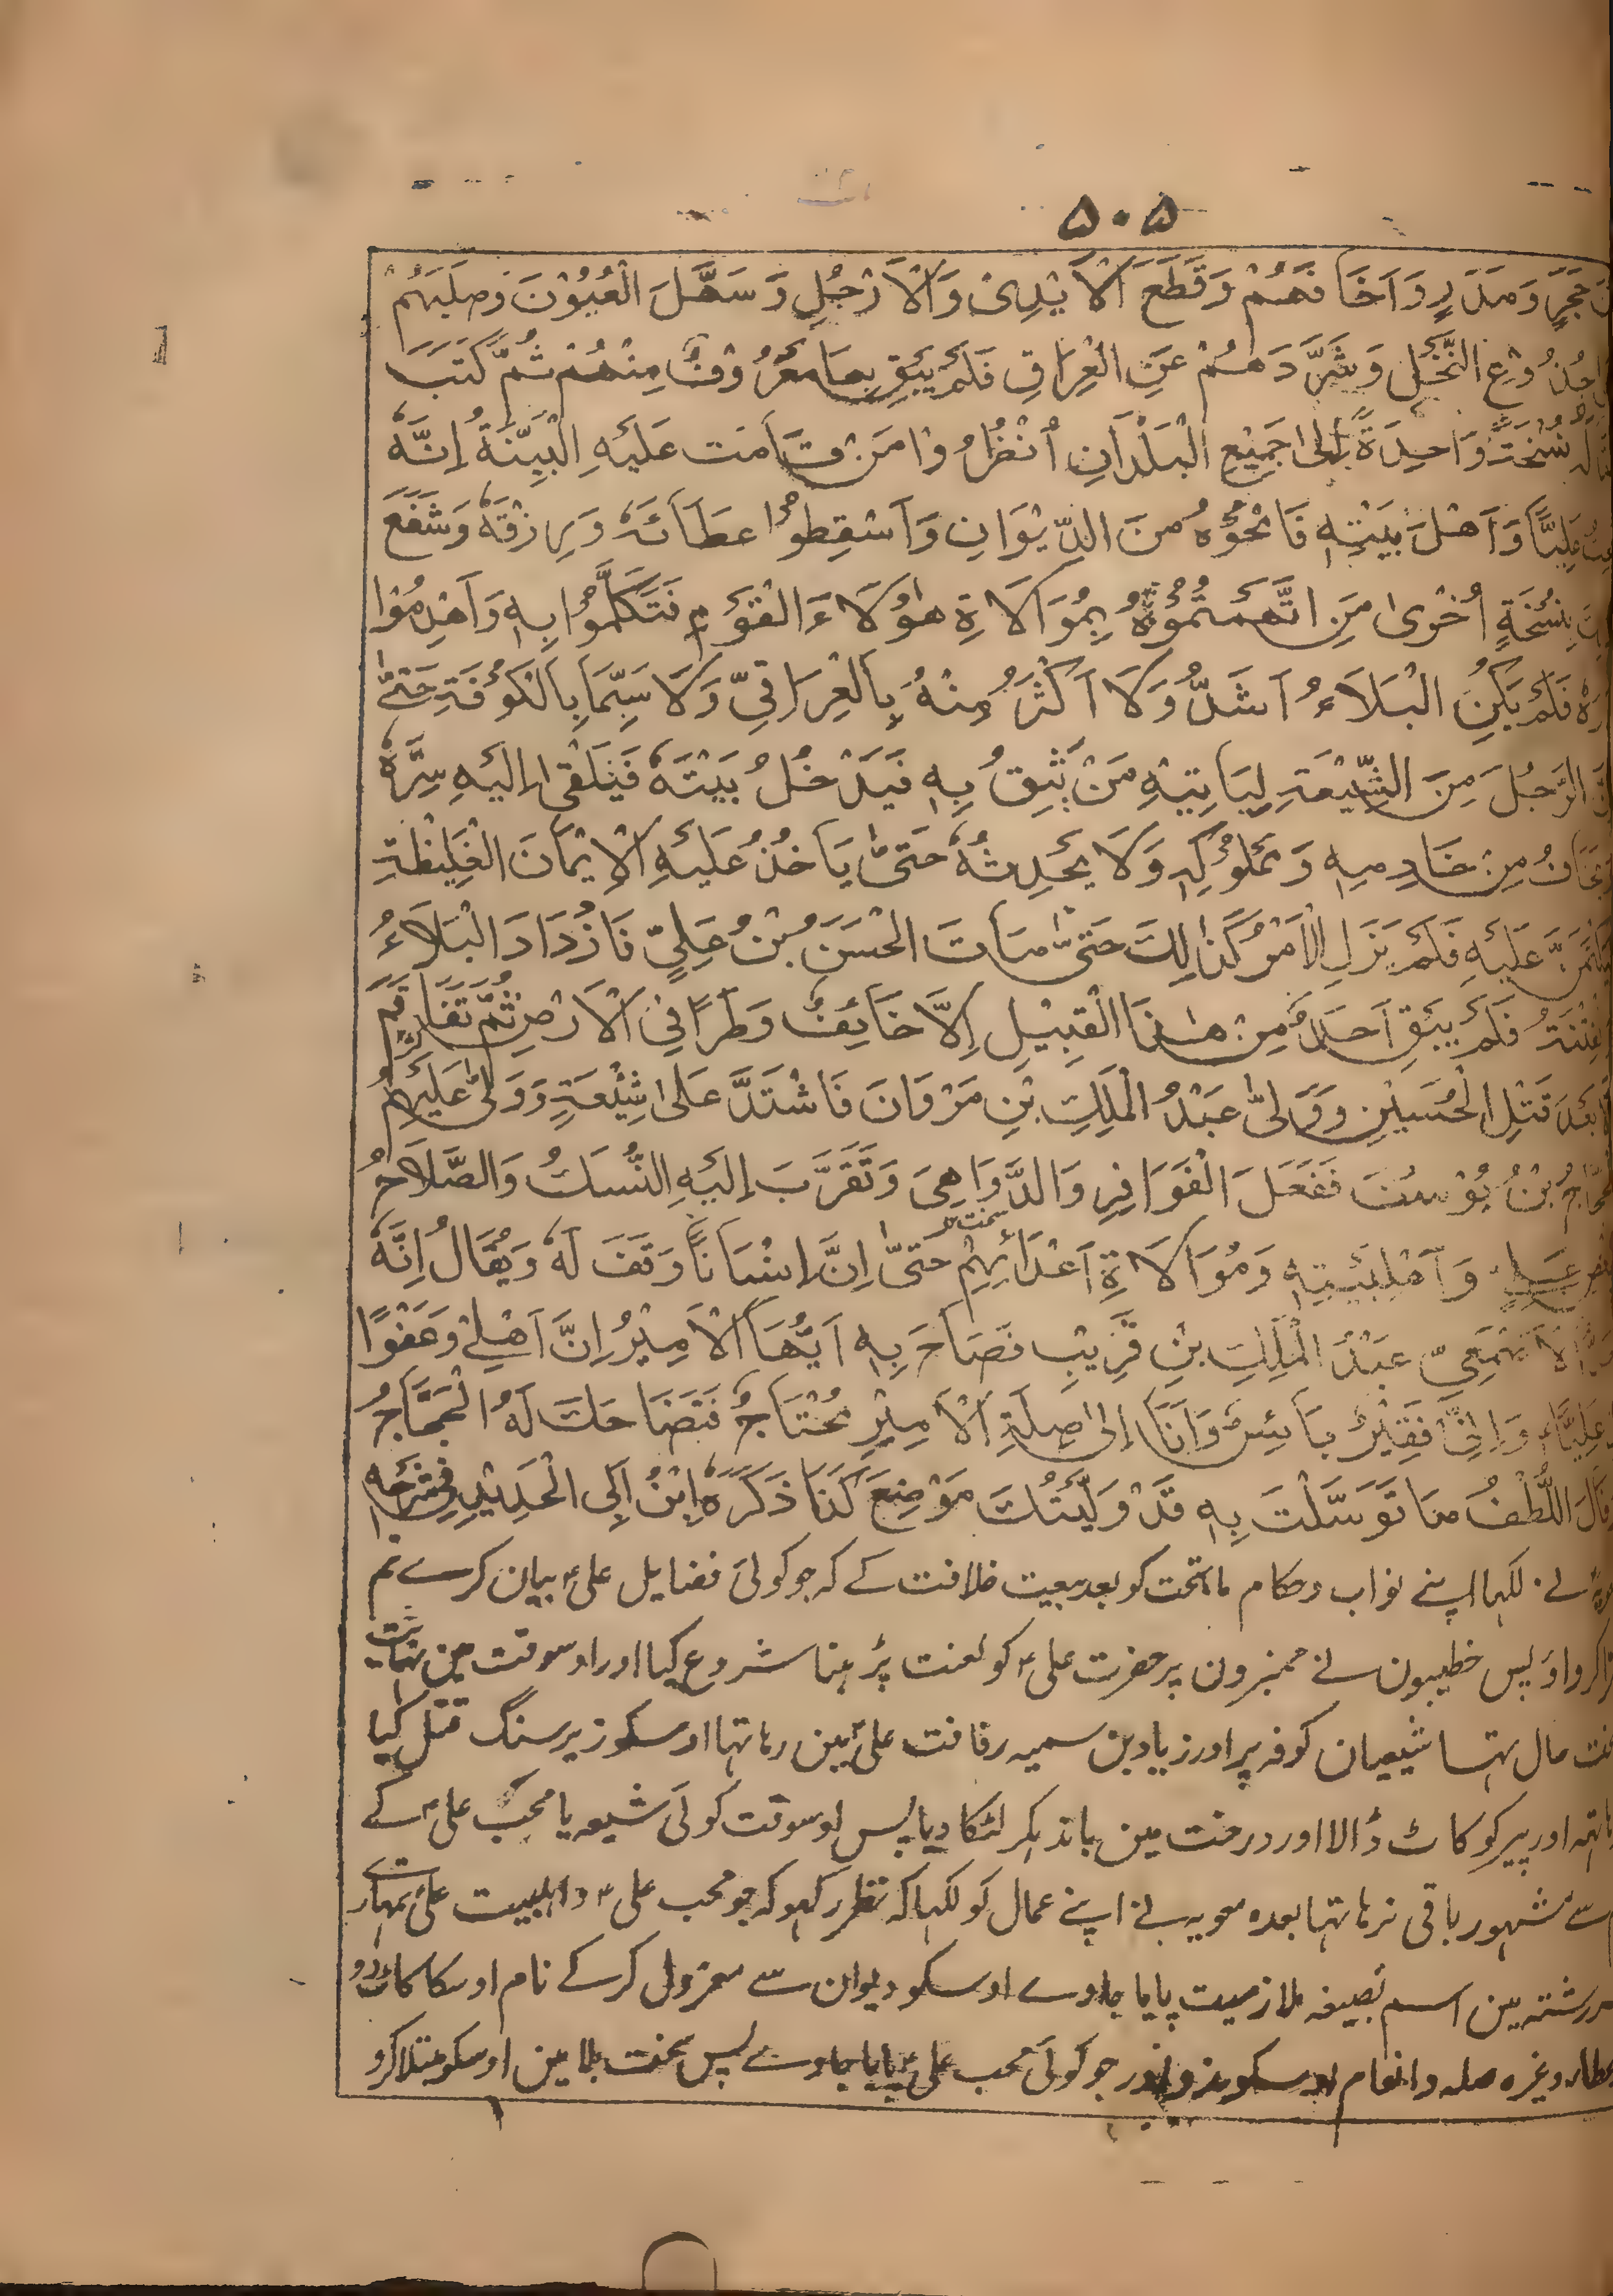 ۵۰۵
حَجَرٍ وَمَدَرٍ وَاَخَافَهُمْ وَقَطَعَ الْاَيْدِیَ وَالْاَرْجُلِ وَسَمَّلَ الْعُيُوْنَ وَصَلَبَهُمْ
جُذُوْعِ النَّخْلِ وَشَرَّدَهُمْ عَنِ الْعِرَاقِ فَلَمْ يَبْقِ بِهَا مَعْرُوْفٌ مِنْهُمْ ثُمَّ كَتَبَ
نُسْخَةً وَاحِدَةً اِلٰى جَمِيْعِ الْبَلْدَانِ اُنْظُرُوْا مَنْ قَامَت عَلَيْهِ الْبَيِّنَةُ اِنَّهٗ
عَلِيًّا وَاَهْلَ بَيْتِهٖ فَامْحُوْهُ مِنَ الدِّيْوَانِ وَاَسْقِطُوْا عَطَائَهٗ وَرِزْقَهٗ وَشَفَعَ
بِنُسْخَةٍ اُخْرٰى مَنِ اتَّهَمْتُمُوْهُ بِمُوَالَاةِ هٰؤُلَاءِ الْقَوْمِ فَتَكَلَّمُوْا بِهٖ وَاَهْدِمُوْا
فَلَمْ يَكُنِ الْبَلَاءُ اَشَدُّ وَلَا اَكْثَرُ مِنْهُ بِالْعِرَاقِيِّ وَلَا سِيَّمَا بِالْكُوْفَةِ حَتّٰى
الرَّجُلَ مِنَ الشِّيْعَةِ لِيَاتِيْهِ مَنْ يَثِقُ بِهٖ فَيَدْخُلُ بَيْتَهٗ فَيَلْقٰى اِلَيْهِ سِرَّهٗ
مِنْ خَادِمِهٖ وَمَمْلُوْكِهٖ وَلَا يُحَدِثُهٗ حَتّٰى يَاخُذُ عَلَيْهِ الْاَيْمَانَ الْغَلِيْظَةِ
عَلَيْهِ فَلَمْ يَزَلِ الْاَمْرُ كَذَالِكَ حَتّٰى مَاتَ الْحَسَنُ بْنُ عَلِيٍّ فَازْدَادَ الْبَلَاءُ
فَلَمْ يَبْقِ اَحَدٌ مِنْ هٰذَا الْقَبِيْلِ اِلَّا خَائِفٌ وَطَرًا فِى الْاَرْضِ ثُمَّ تَفَاقَمَ
بَعْدَ قَتْلِ الْحُسَيْنِ وَوَلّٰى عَبْدُ الْمَلِكِ بْنِ مَرْوَانَ فَاشْتَدَّ عَلٰى شِيْعَةِ وَوَلّٰى عَلَيْهِمْ
بْنُ يُوْسُفَ فَفَعَلَ الْفَوَاقِرِ وَالدَّوَاهِىَ وَتَقَرَّبَ اِلَيْهِ النُّسَكُ وَالصَّلَاحُ
وَاَهْلِبَيْتِهٖ وَمُوَالَاةِ اَعْدَائِهِمْ حَتّٰى اِنَّ اِنْسَانًا وَقَفَ لَهٗ وَيُقَالُ اِنَّهٗ
عَبْدُ الْمَلِكِ بْنِ قَرِيْبٍ فَصَاحَ بِهٖ اَيُّهَا الْاَمِيْرُ اِنَّ اَهْلِىْ وَعَفْوًا
عَلِيًّا وَاِنِّى فَقِيْرٌ بَائِسٌ وَاَنَا اِلٰى صِلَةِ الْاَمِيْرِ مُحْتَاجٌ فَتَضَاحَكَ لَهُ الْحَجَّاجُ
اللُّطْفُ مَا تَوَسَّلْتَ بِهٖ قَدْ وَلَّيْتُكَ مَوْضِعَ كَذَا ذَكَرَهٗ اِبْنُ اَبِى الْحَدِيْدِ فِىْ شَرْحِهٖ
نے لکہا اپنے نواب وحکام ماتحت کو بعد بیعت خلافت کے کہ جو کوئی فضایل علیؑ بیان کرے تم
کرواؤ پس خطیبون نے ممبرون پر حضرت علیؑ کو لعنت پڑہنا شروع کیا اور اوسوقت مین نہایت
مال بہتسا شیعیان کوفہ پر اور زیاد بن سمیہ رفاقت علیؑ مین رہاتہا اوسکو زیر سنگ قتل کیا
ہاتہہ اور پیر کو کاٹ ڈالا اور درخت مین باندہکر لٹکا دیا پس اوسوقت کوئی شیعہ یا محب علیؑ کے
سے مشہور باقی نرہا تہا بعدہ معویہ نے اپنے عمال کو لکہا کہ نظر رکہو کہ جو محب علیؑ واہلبیت علیؑ تمہارے
سررشتہ مین اسم بصیغہ ملازمیت پایا جاوے اوسکو دیوان سے معزول کرکے نام اوسکا کاٹ دو
وغیرہ صلہ وانعام اوسکو ندو اور جو کوئی محب علیؑ پایا جاوے پس سخت بلا مین اوسکو مبتلا کرو